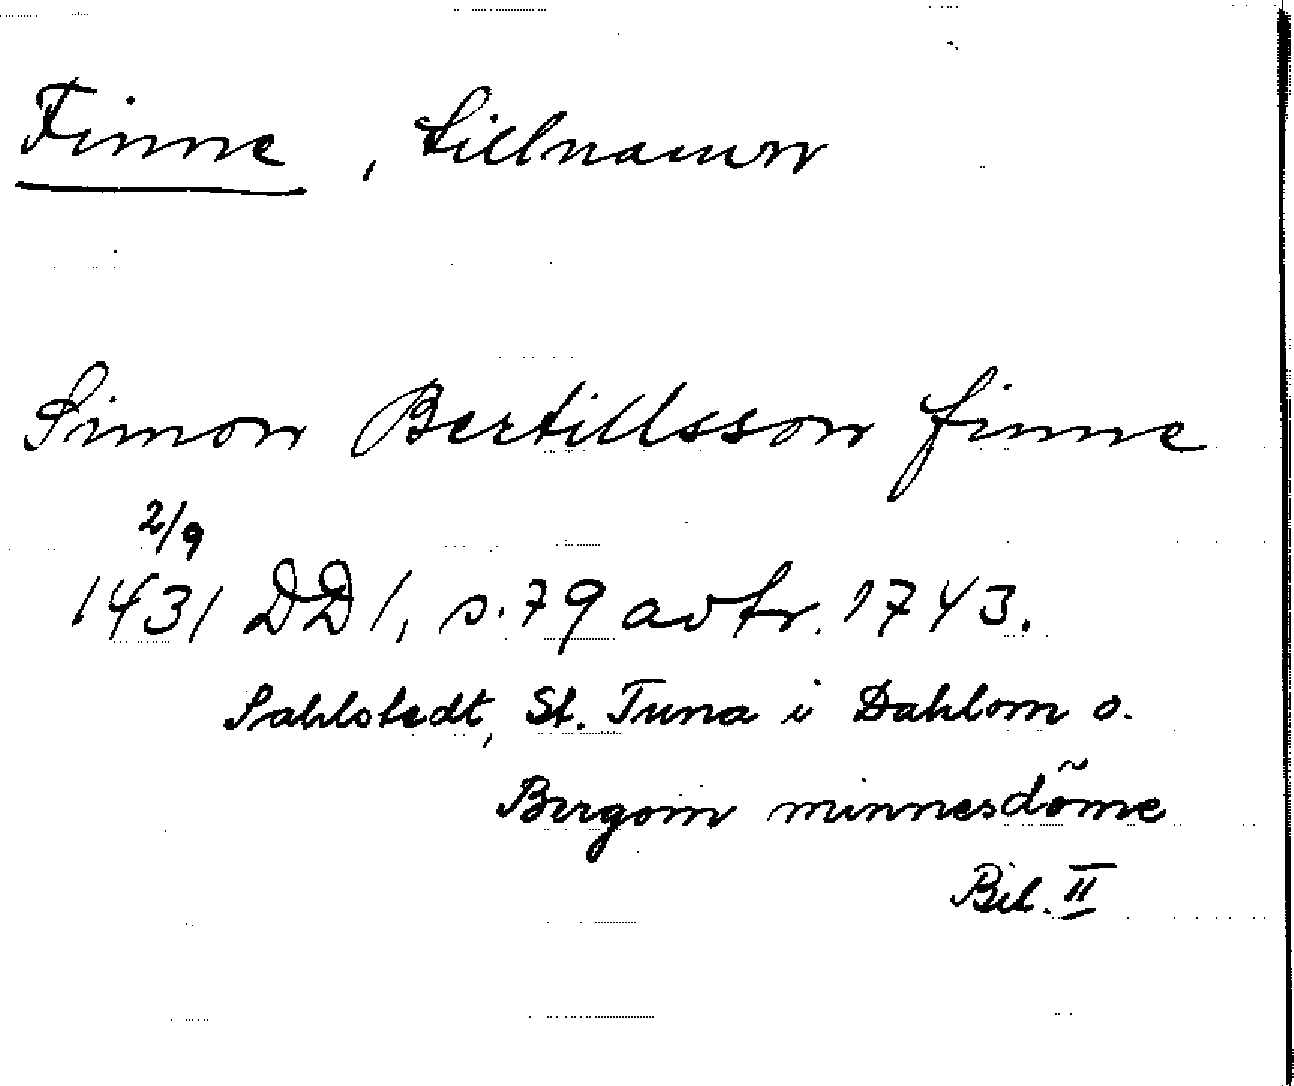 Finne, tillnamn
Simon Bertillsson finne
2/9
1431 DD 1, s. 79 avtr. 1743.
Sahlstedt, St. Tuna i Dahlom o.
Bergom minnesdöme
Bil. II